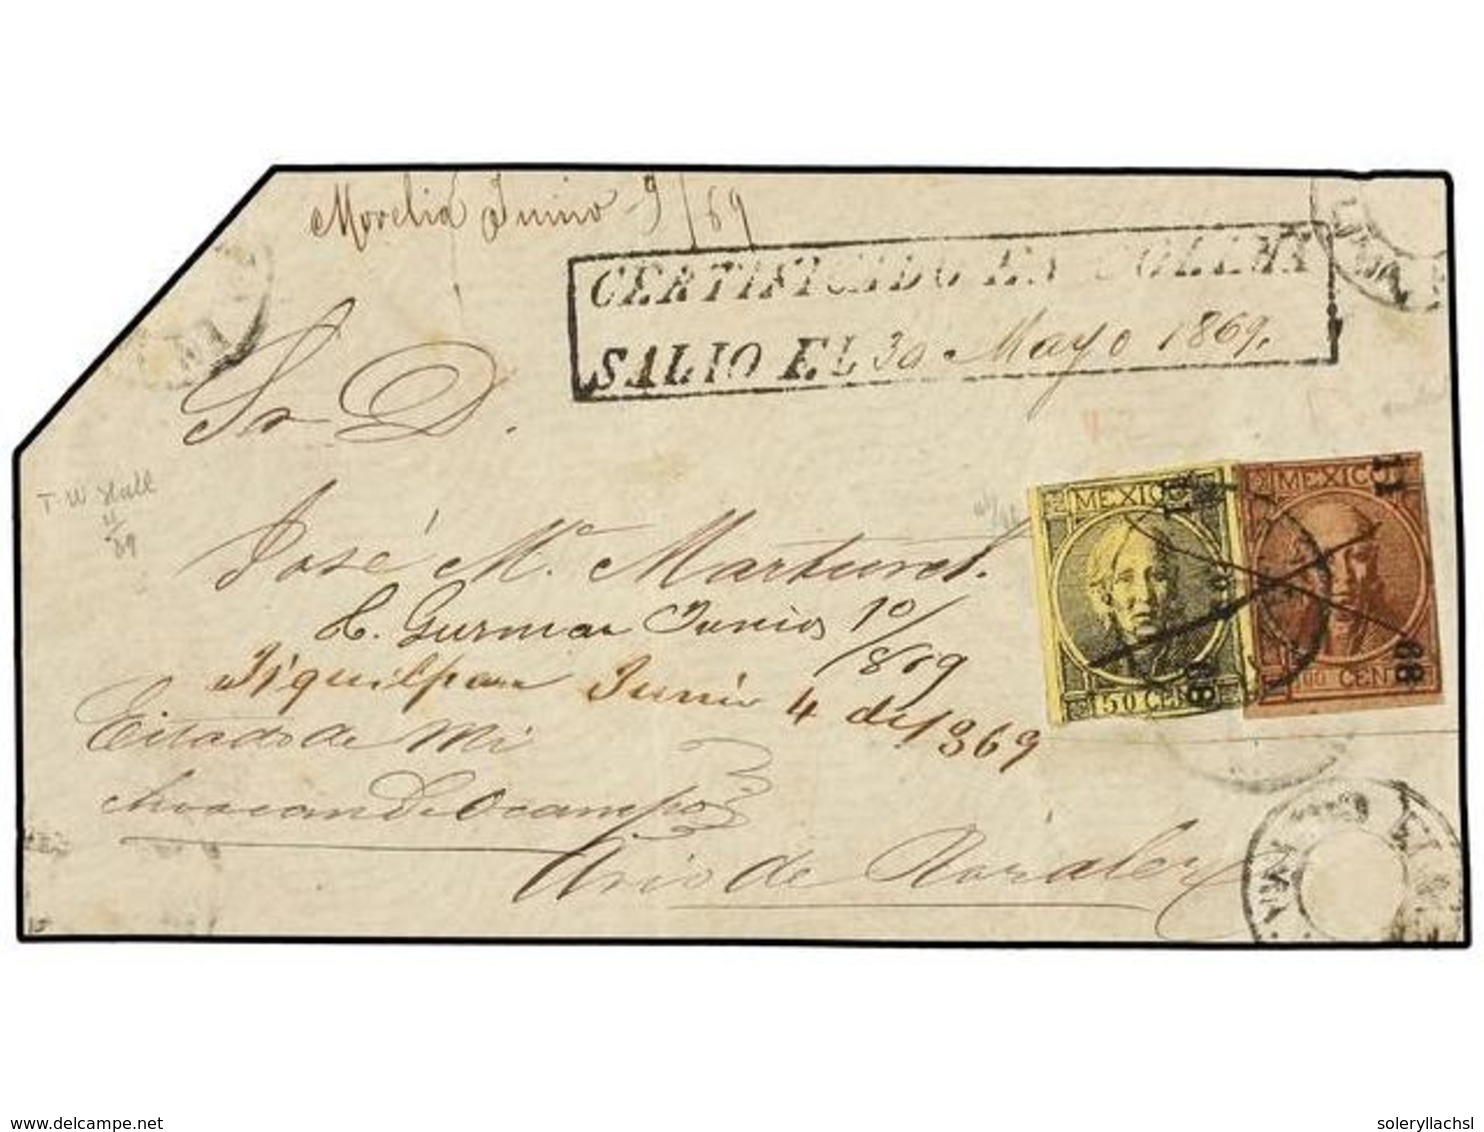 Morelia Junio 9/69
CERTIFICADO EN COLIMA
SALIO EL 30 Mayo 1869.
Sr D.
T W Hall
11/89
José Ma. Marturet.
C. Guzman Junio 10/869
Jiquilpan Junio 4 de 1869
Estado de Mi
choacan de Ocampo
Ario de Rosales
MEXICO
50 CEN
MEXICO
11
68
100 CEN
www.delcampe.net
soleryllachsl